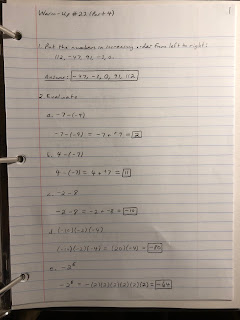 Warm-Up #22 (Part 4)
1
1. Put the numbers in increasing order from left to right:
112, -47, 91, -1, 0.
Answer: -47, -1, 0, 91, 112
2. Evaluate
a. -7-(-9)
-7-(-9) = -7++9 = 2
b. 4-(-7)
4-(-7) = 4++7 = 11
c. -2-8
-2-8 = -2+-8 = -10
d.
e. -2⁶
-2⁶ = -(2)(2)(2)(2)(2)(2) = -64